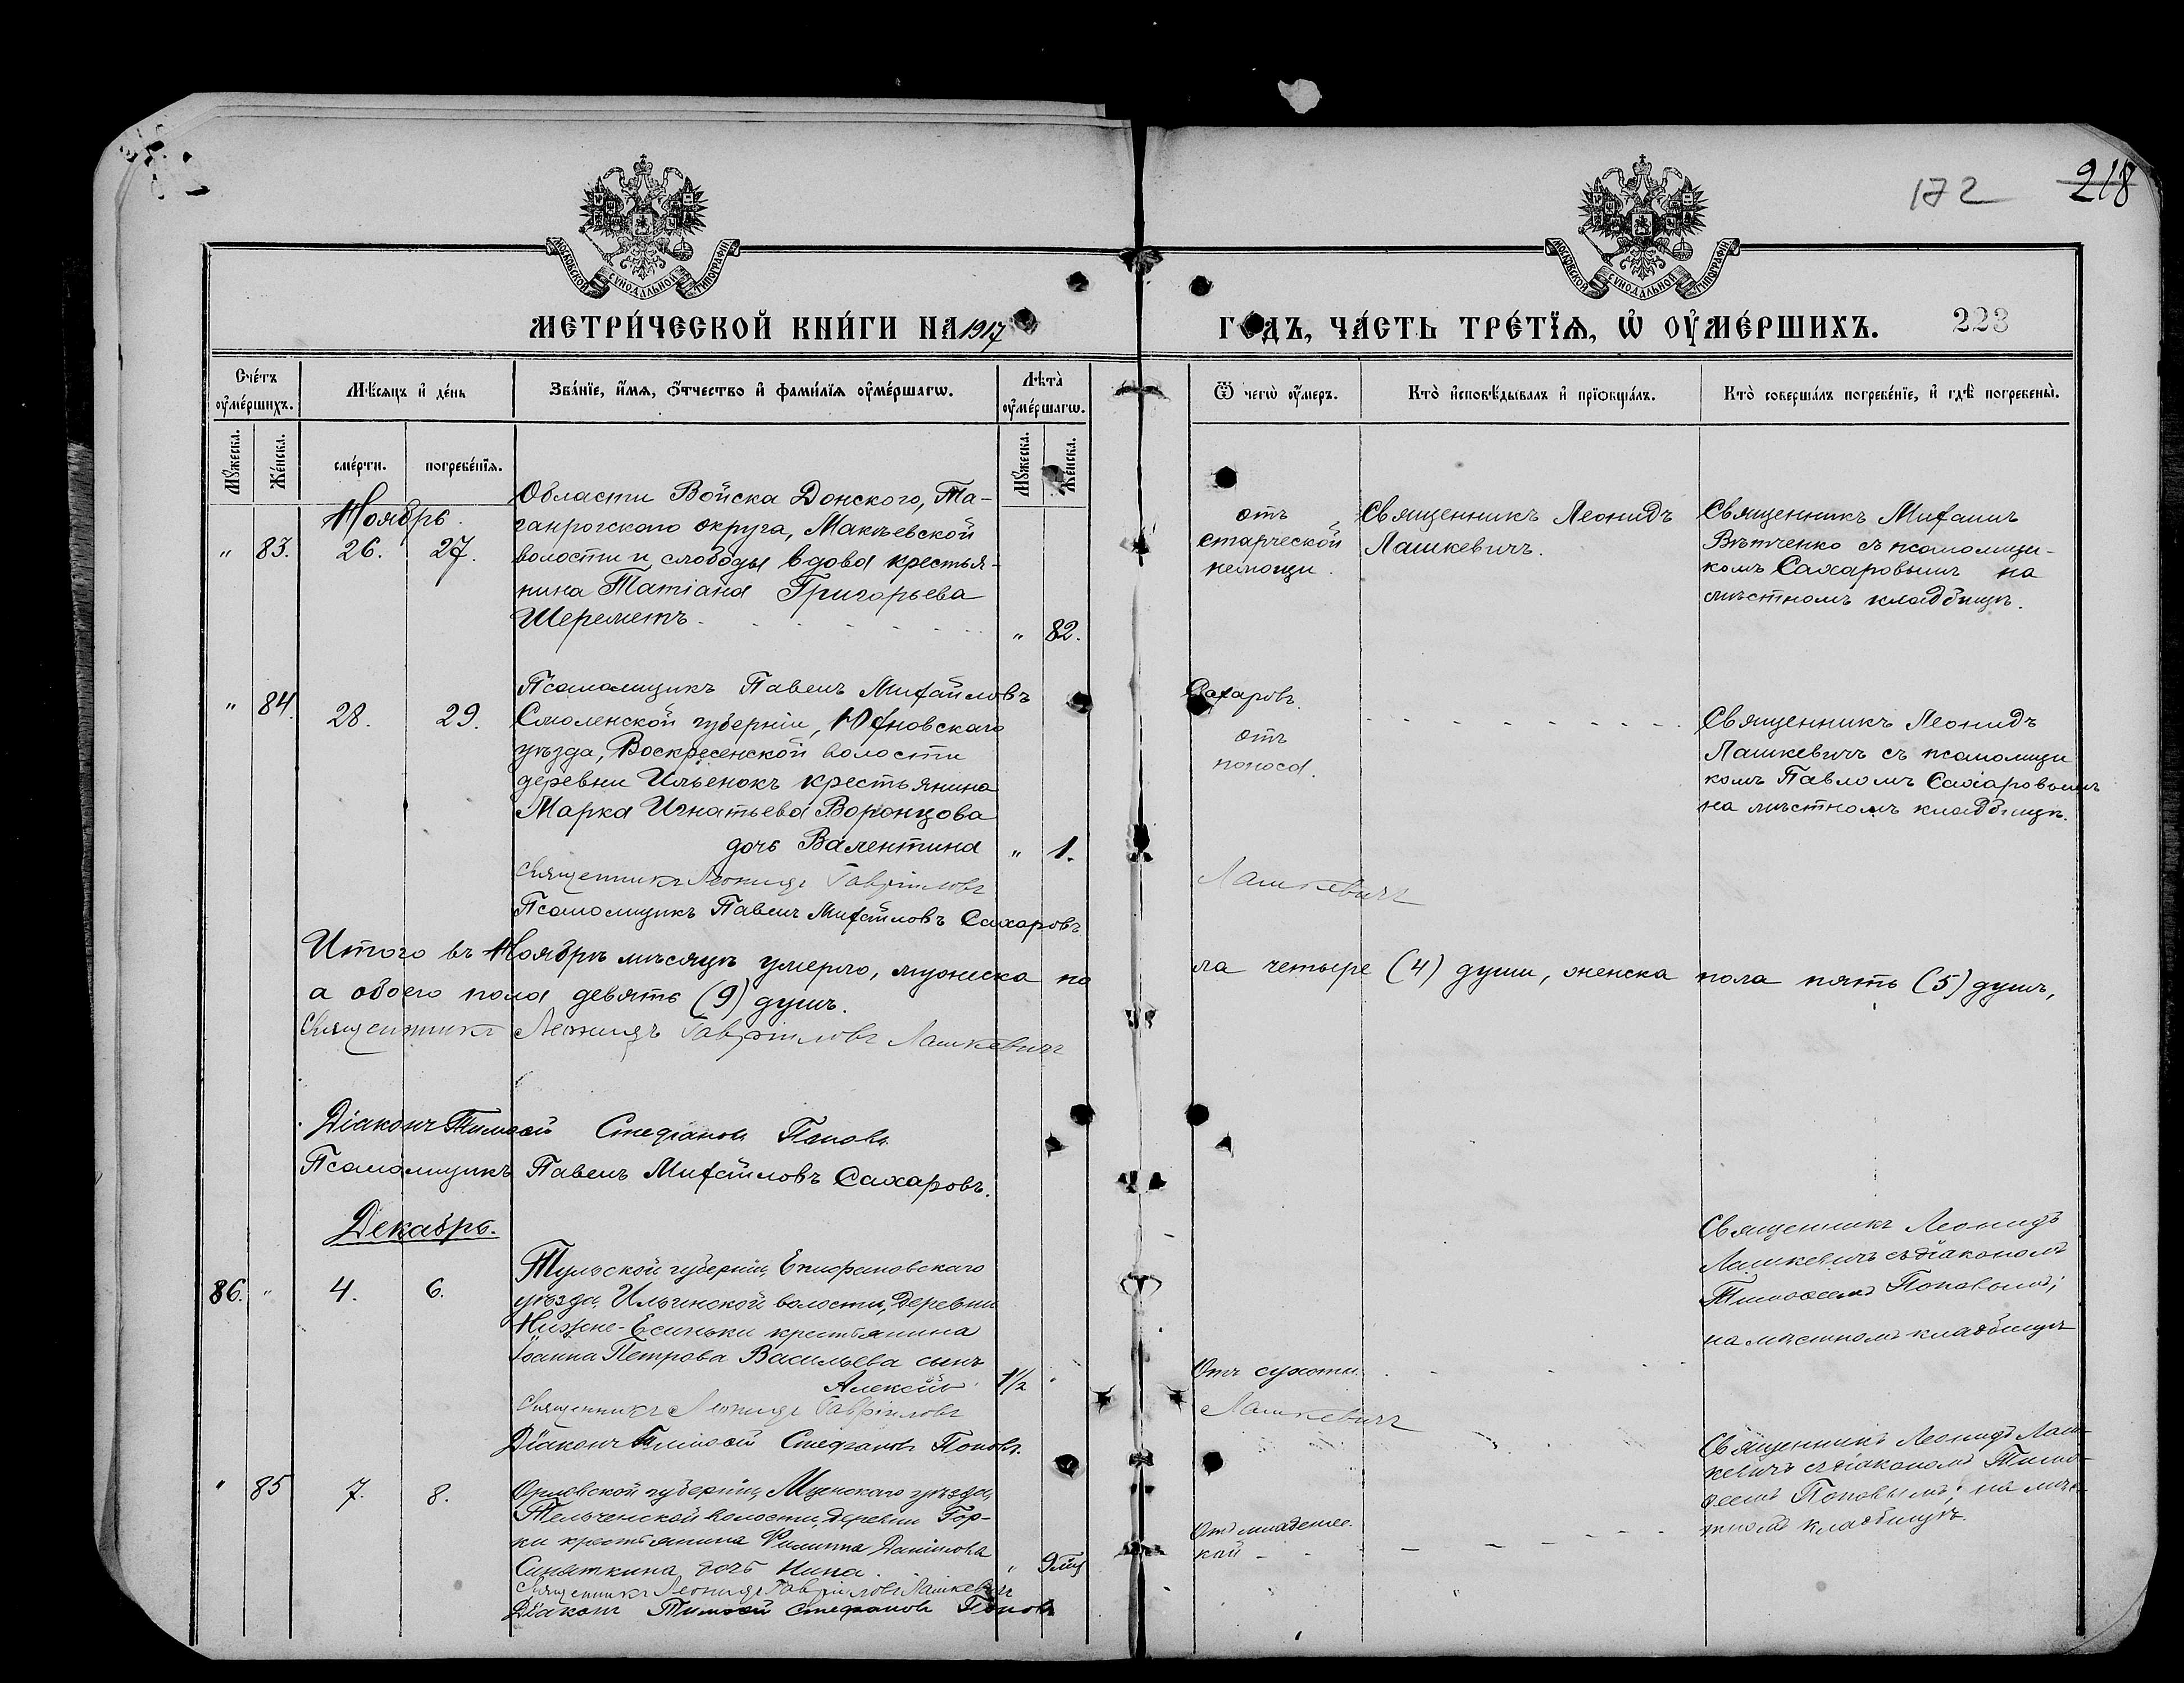 172 218
МОСКОВСКОЙ СУНОДАЛЬНОЙ ТИПОГРАФІИ
МОСКОВСКОЙ СУНОДАЛЬНОЙ ТИПОГРАФІИ
МЕТРИ́ЧЕСКОЙ КНИ́ГИ НА 1917 ГОДЪ, ЧА́СТЬ ТРЕ́ТЇѦ, Ѡ҆ ОУ҆МЕ́РШИХЪ. 223
Счетъ оумершихъ.
Мѣсяцъ и день
Званїе, имя, отчество и фамилїя оумершагѡ.
Лѣта оумершагѡ.
Ѿ чегѡ оумеръ.
Кто исповѣдывалъ и прїобщалъ.
Кто совершалъ погребенїе, и гдѣ погребены.
Мꙋжеска. Женска. смерти. погребенїя. Мꙋжеска. Женска.
Ноябрь.
" 83. 26. 27.
Области Войска Донского, Та-
ганрогскаго округа, Макѣевской
волости и слободы вдова крестья-
нина Татіана Григорьева
Шереметъ. " 82.
отъ
старческой
немощи.
Священникъ Леонидъ
Лашкевичъ.
Священникъ Михаилъ
Вѣтченко съ псаломщи-
комъ Сахаровымъ на
мѣстномъ кладбищѣ.
Псаломщикъ Павелъ Михайловъ Сахаровъ.
" 84. 28. 29.
Смоленской губерніи, Юхновскаго
уѣзда, Воскресенской волости
деревни Ильенокъ крестьянина
Марка Игнатьева Воронцова
дочь Валентина " 1.
отъ
поноса.
Священникъ Леонидъ
Лашкевичъ съ псаломщи
комъ Павломъ Сахаровымъ
на мѣстномъ кладбищѣ.
Священникъ Леонидъ Гавріиловъ Лашкевичъ
Псаломщикъ Павелъ Михайловъ Сахаровъ.
Итого въ Ноябрѣ мѣсяцѣ умерло, мужеска пола четыре (4) души, женска пола пять (5) душъ,
а обоего пола девять (9) душъ.
Священникъ Леонидъ Гавріиловъ Лашкевичъ
Діаконъ Тимоѳей Стефановъ Поповъ
Псаломщикъ Павелъ Михайловъ Сахаровъ.
Декабрь.
86. " 4. 6.
Тульской губерніи, Епифановскаго
уѣзда, Ильинской волости, деревни
крестьянина
Іоанна Петрова Васильева сынъ
Алексѣй 1½ "
Отъ сухотки.
Священникъ Леонидъ
Лашкевичъ съ діакономъ
Тимоѳеемъ Поповымъ;
на мѣстномъ кладбищѣ
Священникъ Леонидъ Гавріиловъ Лашкевичъ
Діаконъ Тимоѳей Стефановъ Поповъ.
" 85 7. 8.
Орловской губерніи, Мценскаго уѣзда,
Тельченской волости, деревни Гор-
ки крестьянина Филиппа Даніилова
Синяткина дочь Нина. " 9 мѣс
Отъ младенчес-
кой
Священникъ Леонидъ Лаш-
кевичъ съ діакономъ Тимо-
ѳеемъ Поповымъ; на мѣс-
тномъ кладбищѣ.
Священникъ Леонидъ Гавріиловъ Лашкевичъ
Діаконъ Тимоѳей Стефановъ Поповъ